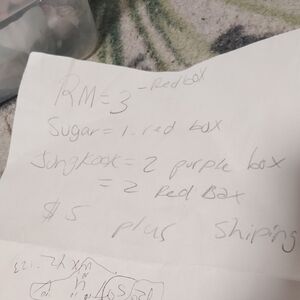 RM=3 - Redbox
Sugar = 1. red box
Jungkook = 2 purple box
= 2 Red Box
$5 plus Shiping